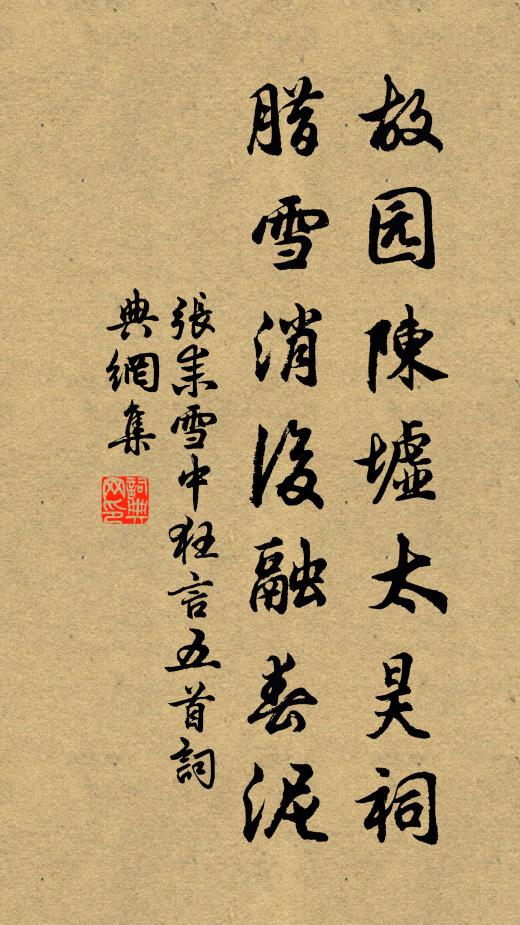 故园陳墟太昊祠
腊雪消後融春泥
張耒雪中狂言五首詞
典網集
詞典
网印